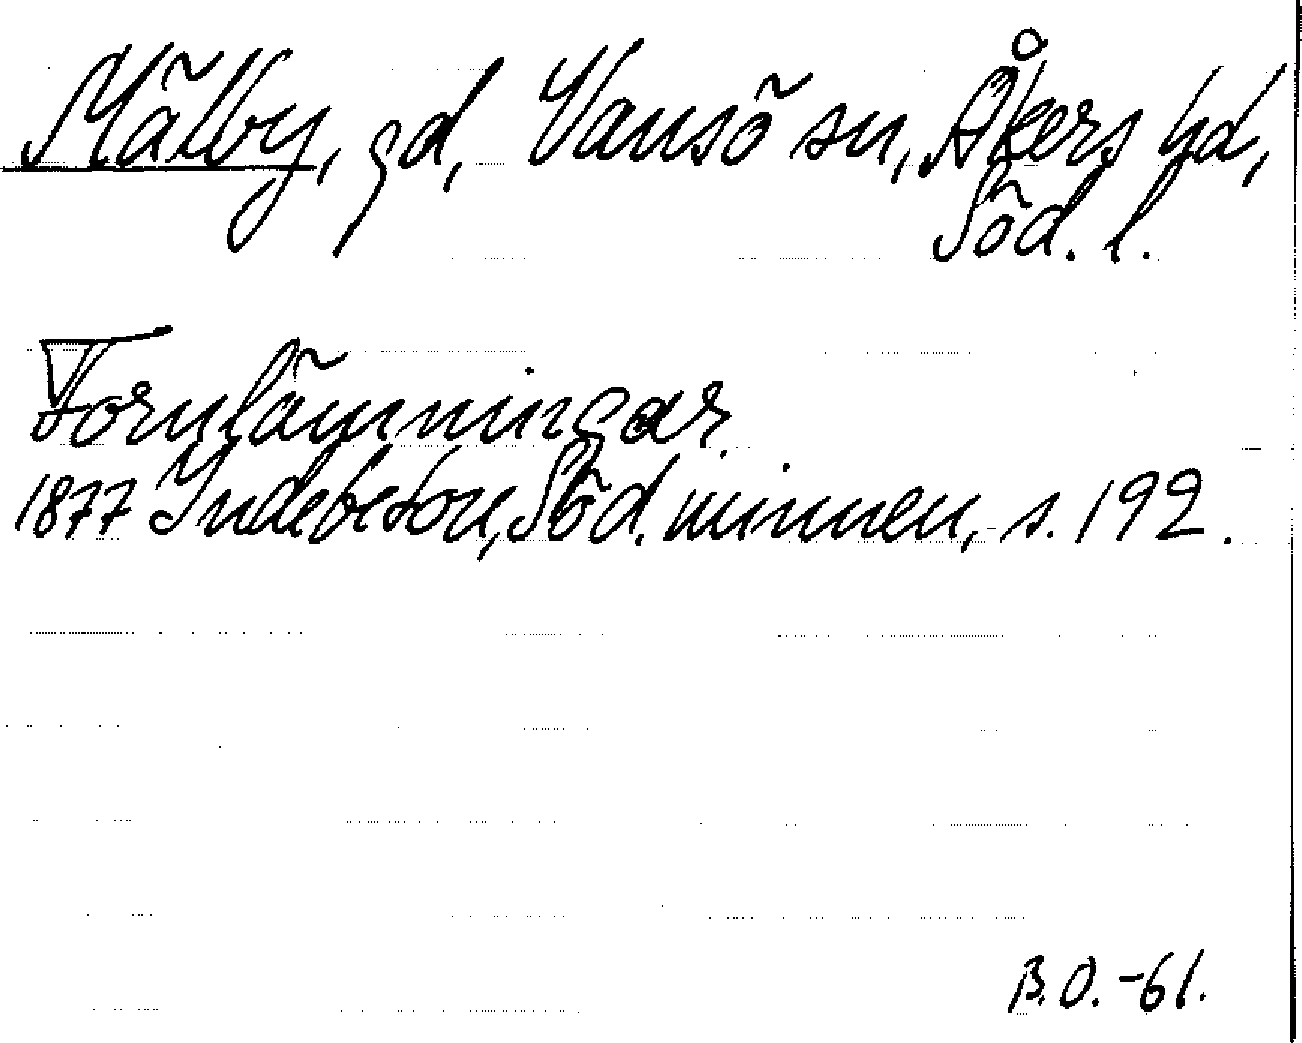 Mälby, gd, Vansö sn, Åkers hd,
Söd. l.
Fornlämningar.
1877 Indebetou, Söd. minnen, s. 192.
B.O. -61.